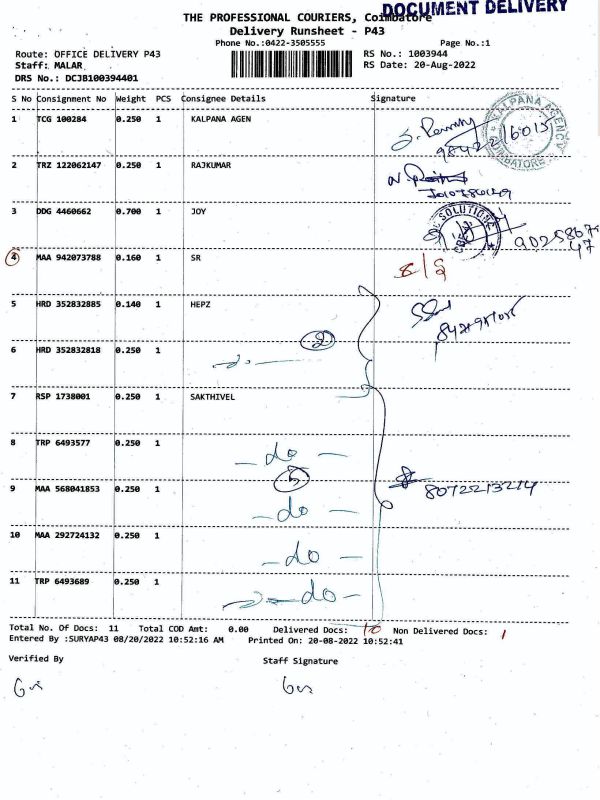 DOCUMENT DELIVERY
THE PROFESSIONAL COURIERS, Coimbatore
Delivery Runsheet - P43
Phone No.:0422-3505555 Page No.:1
Route: OFFICE DELIVERY P43 RS No.: 1003944
Staff: MALAR RS Date: 20-Aug-2022
DRS No.: DCJB100394401
S No Consignment No Weight PCS Consignee Details Signature
1 TCG 100284 0.250 1 KALPANA AGEN
KALPANA AGENCY
2 TRZ 122062147 0.250 1 RAJKUMAR
3 DDG 4460662 0.700 1 JOY
SOLUTIONS
4 MAA 942073788 0.160 1 SR
5 HRD 352832885 0.140 1 HEPZ
2
6 HRD 352832818 0.250 1
7 RSP 1738001 0.250 1 SAKTHIVEL
8 TRP 6493577 0.250 1
— do —
5
9 MAA 568041853 0.250 1 8072213214
— do —
10 MAA 292724132 0.250 1
— do —
11 TRP 6493689 0.250 1
— do —
Total No. Of Docs: 11 Total COD Amt: 0.00 Delivered Docs: 10 Non Delivered Docs: 1
Entered By :SURYAP43 08/20/2022 10:52:16 AM Printed On: 20-08-2022 10:52:41
Verified By Staff Signature